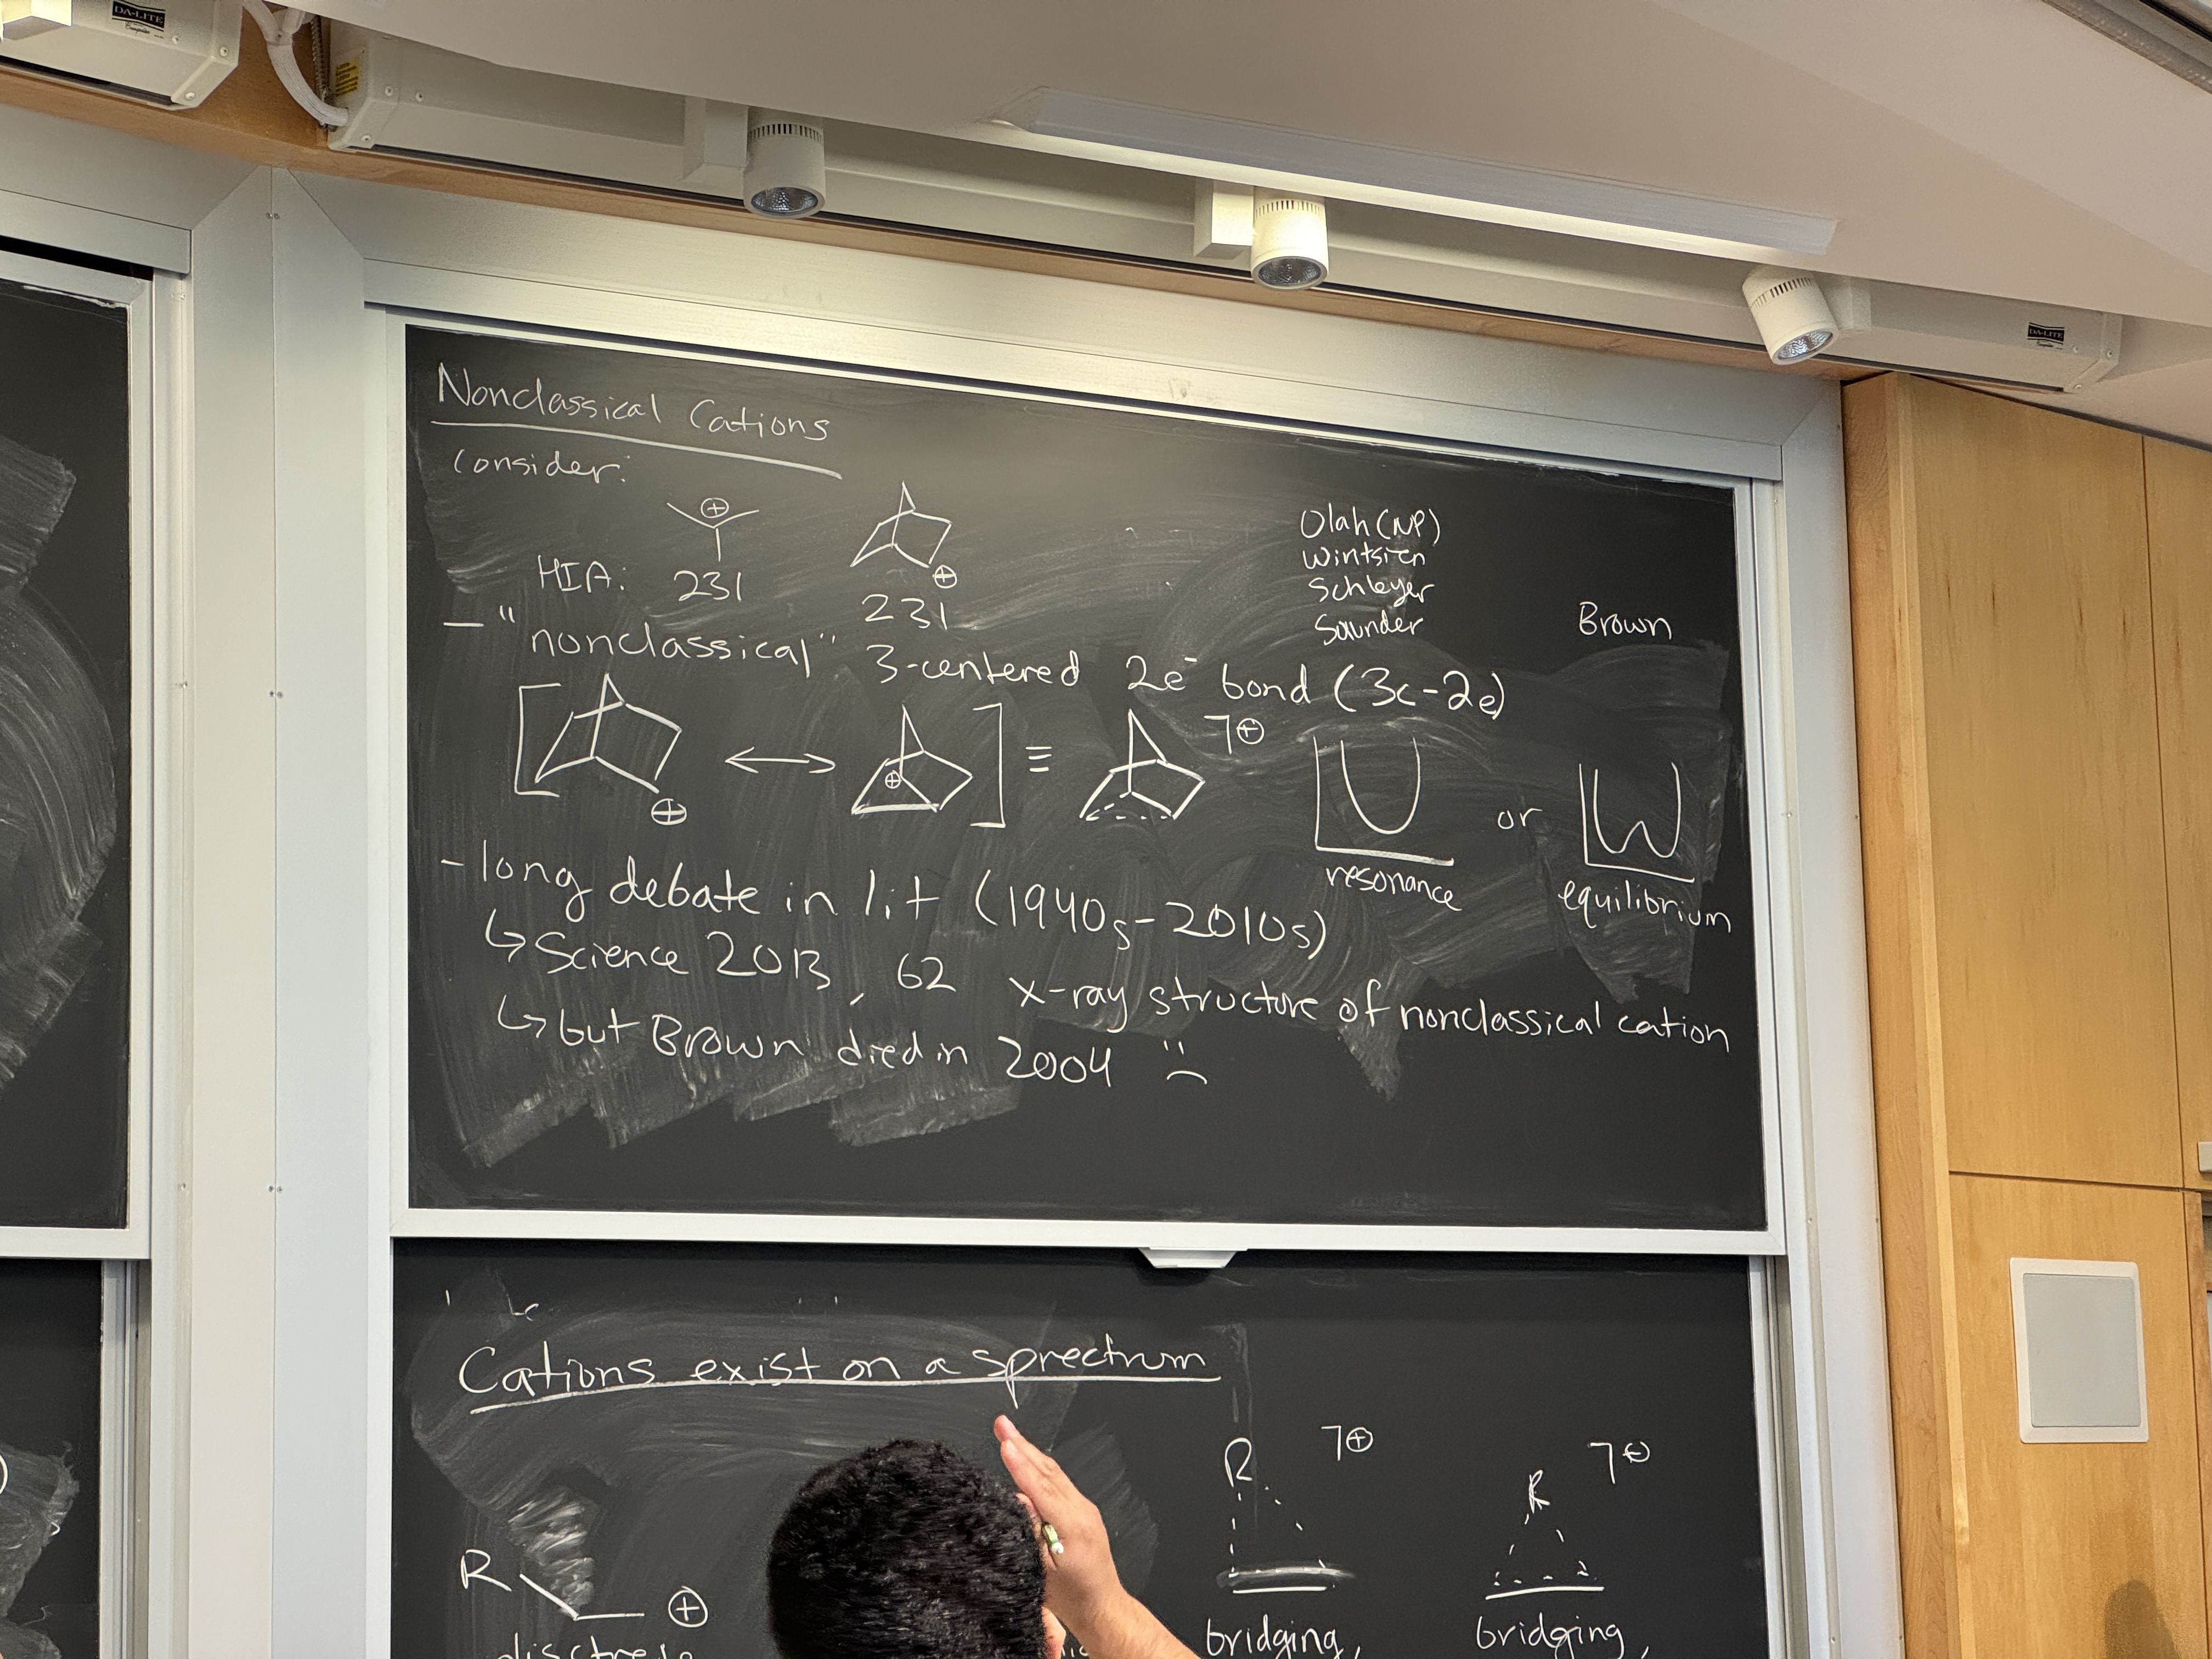 DA-LITE
DA-LITE
Nonclassical Cations
consider:
⊕
⊕
HIA: 231 231
Olah (NP)
Wintsien
Schleyer
Saunder
Brown
- "nonclassical" 3-centered 2e⁻ bond (3c-2e)
[ ⊕ ↔ ⊕ ] ≡ ⊕
resonance or equilibrium
- long debate in lit (1940s-2010s)
↳ Science 2013, 62 x-ray structure of nonclassical cation
↳ but Brown died in 2004 :(
Cations exist on a sprectrum
R ⊕
R ⊕
R ⊕
bridging,
bridging,